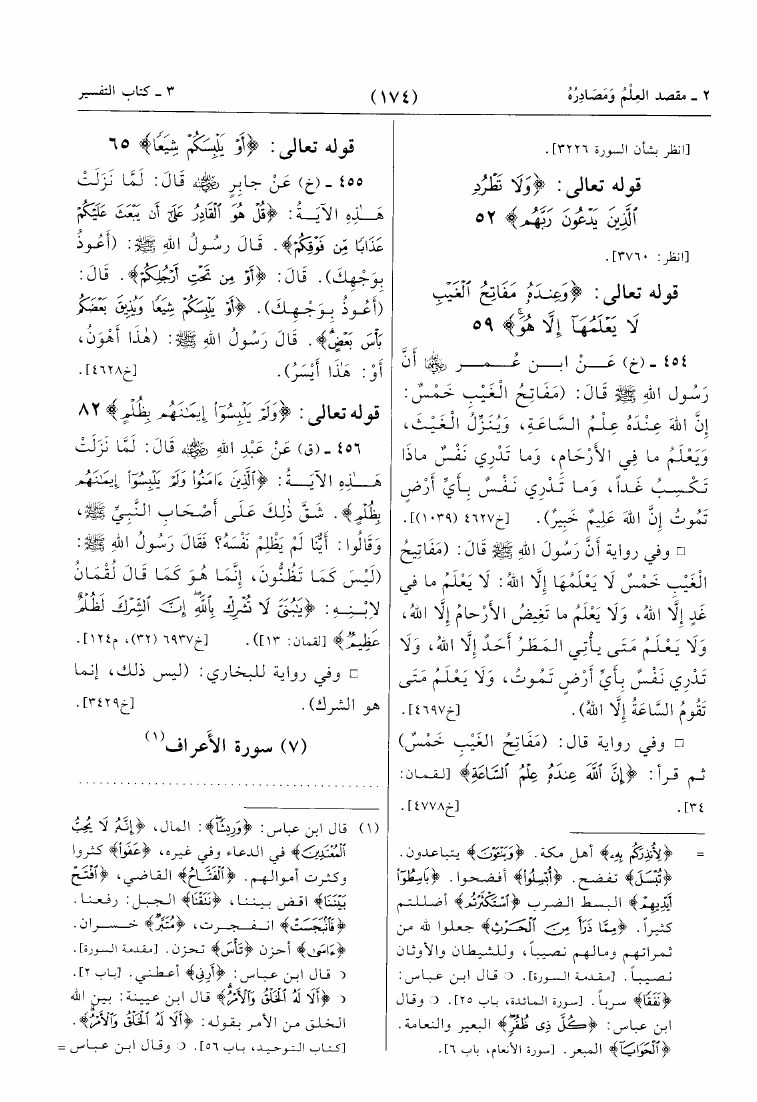 ٢ ـ مقصد العِلْمُ وَمَصَادِرُهُ
(١٧٤)
٣ ـ كتاب التفسير
[انظر بشأن السورة ٣٢٢٦].
قوله تعالى: ﴿وَلَا تَطْرُدِ
ٱلَّذِينَ يَدْعُونَ رَبَّهُم﴾ ٥٢
[انظر: ٣٧٦٠].
قوله تعالى: ﴿وَعِندَهُۥ مَفَاتِحُ ٱلْغَيْبِ
لَا يَعْلَمُهَآ إِلَّا هُوَ﴾ ٥٩
٤٥٤ ـ (خ) عَـنْ ابـن عُـمـر ﷺ أَنَّ
رَسُولَ اللهِ ﷺ قَالَ: (مَفَاتِحُ الْغَيْبِ خَمْسٌ:
إِنَّ اللهَ عِنْدَهُ عِلْمُ السَّاعَةِ، وَيُنَزِّلُ الْغَيْثَ،
وَيَعْلَمُ ما فِي الأَرْحَامِ، وَما تَدْرِي نَفْسٌ ماذَا
تَكْسِبُ غَداً، وَمـا تَـدْرِي نَـفْـسٌ بِـأَيِّ أَرْضٍ
تَمُوتُ إِنَّ اللهَ عَلِيمٌ خَبِيرٌ). [خ٤٦٢٧ (١٠٣٩)].
□ وفي رواية أَنَّ رَسُولَ اللهِ ﷺ قَالَ: (مَفَاتِيحُ
الْغَيْبِ خَمْسٌ لَا يَعْلَمُهَا إِلَّا اللهُ: لَا يَعْلَمُ ما في
غَدٍ إِلَّا اللهُ، وَلَا يَعْلَمُ ما تَغِيضُ الأَرْحامُ إِلَّا اللهُ،
وَلَا يَـعْـلَـمُ مَتَى يـأْتِي الـمَطَرُ أَحَدٌ إِلَّا اللهُ، وَلَا
تَدْرِي نَفْسٌ بِأَيِّ أَرْضٍ تَمُوتُ، وَلَا يَعْلَمُ مَتَى
تَقُومُ السَّاعَةُ إِلَّا اللهُ). [خ٤٦٩٧].
□ وفي رواية قال: (مَفَاتِحُ الغَيْبِ خَمْسٌ)
ثـم قـرأ: ﴿إِنَّ ٱللَّهَ عِندَهُۥ عِلْمُ ٱلسَّاعَةِ﴾ [لـقـمـان:
٣٤]. [خ٤٧٧٨].
= ﴿لِأُنذِرَكُم بِهِۦ﴾ أهل مكة. ﴿وَيَنْـَٔوْنَ﴾ يتباعدون.
﴿تُبْسَلَ﴾ تفضح. ﴿أُبْسِلُوا﴾ أفضحوا. ﴿بَاسِطُوٓا
أَيْدِيهِمْ﴾ البسط الضرب ﴿ٱسْتَكْثَرْتُم﴾ أضللتم
كثيراً. ﴿مِمَّا ذَرَأَ مِنَ ٱلْحَرْثِ﴾ جعلوا لله من
ثمراتهم ومالهم نصيباً، وللشيطان والأوثان
نصيباً. [مقدمة السورة]. ○ قال ابن عباس:
﴿نَفَقًا﴾ سرباً. [سورة المائدة، باب ٢٥]. ○ وقال
ابن عباس: ﴿كُلَّ ذِى ظُفُرٍ﴾ البعير والنعامة.
﴿ٱلْحَوَايَآ﴾ المبعر. [سورة الأنعام، باب ٦].
قوله تعالى: ﴿أَوْ يَلْبِسَكُمْ شِيَعًا﴾ ٦٥
٤٥٥ ـ (خ) عَنْ جابِرٍ ﷺ قَالَ: لَمَّا نَزَلَتْ
هَـٰـذِهِ الآيَـةُ: ﴿قُلْ هُوَ ٱلْقَادِرُ عَلَىٰٓ أَن يَبْعَثَ عَلَيْكُمْ
عَذَابًا مِّن فَوْقِكُمْ﴾. قَـالَ رَسُولُ اللهِ ﷺ: (أَعُوذُ
بِوَجْهِكَ). قَالَ: ﴿أَوْ مِن تَحْتِ أَرْجُلِكُمْ﴾. قَالَ:
(أَعُوذُ بِوَجْهِكَ). ﴿أَوْ يَلْبِسَكُمْ شِيَعًا وَيُذِيقَ بَعْضَكُم
بَأْسَ بَعْضٍ﴾. قَالَ رَسُولُ اللهِ ﷺ: (هٰذَا أَهْوَنُ،
أَوْ: هٰذَا أَيْسَرُ). [خ٤٦٢٨].
قوله تعالى: ﴿وَلَمْ يَلْبِسُوٓا۟ إِيمَـٰنَهُم بِظُلْمٍ﴾ ٨٢
٤٥٦ ـ (ق) عَنْ عَبْدِ اللهِ ﷺ قَالَ: لَمَّا نَزَلَتْ
هَـٰـذِهِ الآيَـةُ: ﴿ٱلَّذِينَ ءَامَنُوا۟ وَلَمْ يَلْبِسُوٓا۟ إِيمَـٰنَهُم
بِظُلْمٍ﴾. شَـقَّ ذٰلِكَ عَـلَـى أَصْـحَـابِ النَّبِيِّ ﷺ،
وَقَالُوا: أَيُّنَا لَمْ يَظْلِمْ نَفْسَهُ؟ فَقَالَ رَسُولُ اللهِ ﷺ:
(لَيْسَ كَمَا تَظُنُّونَ، إِنَّمَا هُوَ كَمَا قَالَ لُقْمَانُ
لاِبْـنِـهِ: ﴿يَـٰبُنَىَّ لَا تُشْرِكْ بِٱللَّهِ إِنَّ ٱلشِّرْكَ لَظُلْمٌ
عَظِيمٌ﴾ [لقمان: ١٣]). [خ٦٩٣٧ (٣٢)، م١٢٤].
□ وفي رواية للبخاري: (ليس ذلك، إنما
هو الشرك). [خ٣٤٢٩].
(٧) سورة الأعراف(١)
................................
(١) قال ابن عباس: ﴿وَرِيشًا﴾: المال، ﴿إِنَّهُۥ لَا يُحِبُّ
ٱلْمُعْتَدِينَ﴾ في الدعاء وفي غيره، ﴿عَفَوا﴾ كثروا
وكثرت أموالهم. ﴿ٱلْفَتَّاحُ﴾ القاضي، ﴿ٱفْتَحْ
بَيْنَنَا﴾ اقض بيننا، ﴿نَتَقْنَا﴾ الجبل: رفعنا.
﴿فَٱنۢبَجَسَتْ﴾ انـفـجـرت، ﴿مُتَبَّرٌ﴾ خسـران.
﴿ءَاسَىٰ﴾ أحزن ﴿تَأْسَ﴾ تحزن. [مقدمة السورة].
○ قال ابن عباس: ﴿أَرِنِى﴾ أعطني. [باب ٢].
○ ﴿أَلَا لَهُ ٱلْخَلْقُ وَٱلْأَمْرُ﴾ قال ابن عيينة: بين الله
الخلق من الأمر بقوله: ﴿أَلَا لَهُ ٱلْخَلْقُ وَٱلْأَمْرُ﴾.
[كتاب التوحيد، باب ٥٦]. ○ وقال ابن عباس =